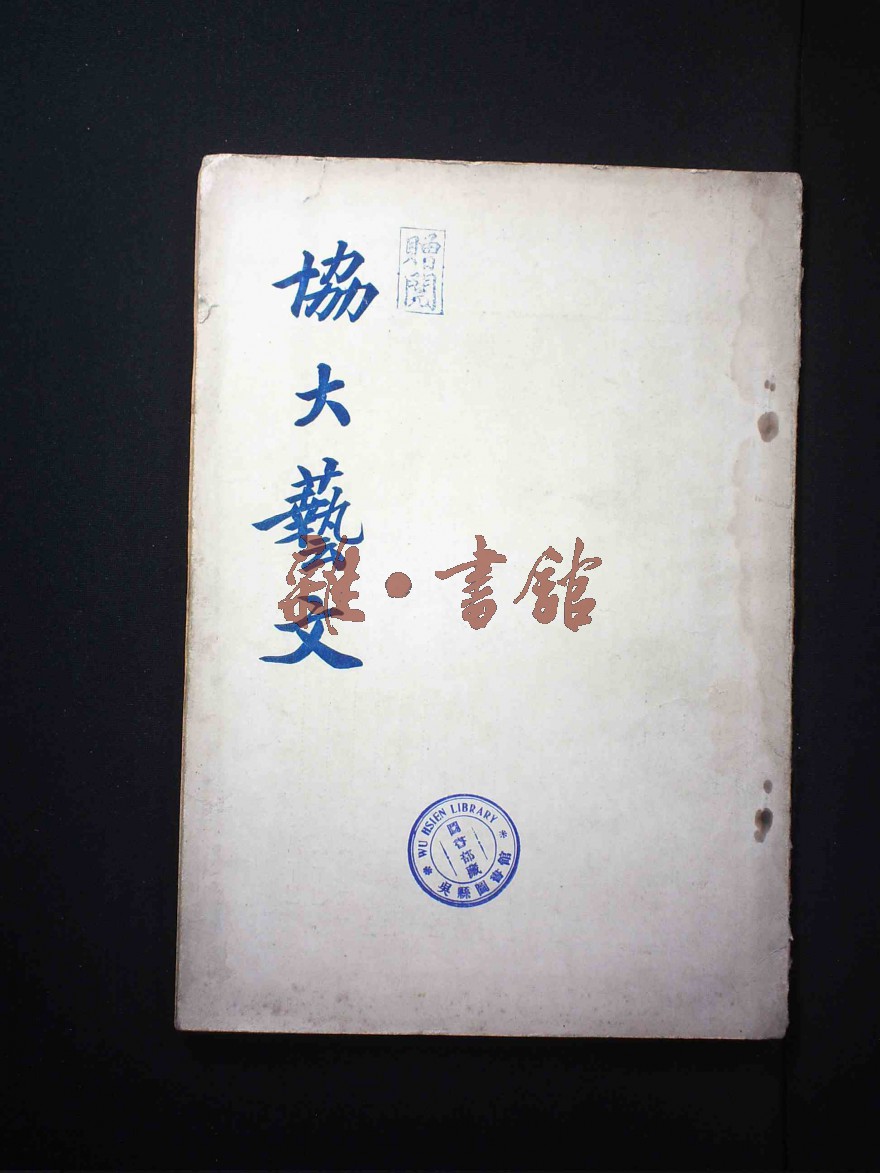 協大藝文
贈閱
雜·書館
WU HSIEN LIBRARY
吳縣圖書館